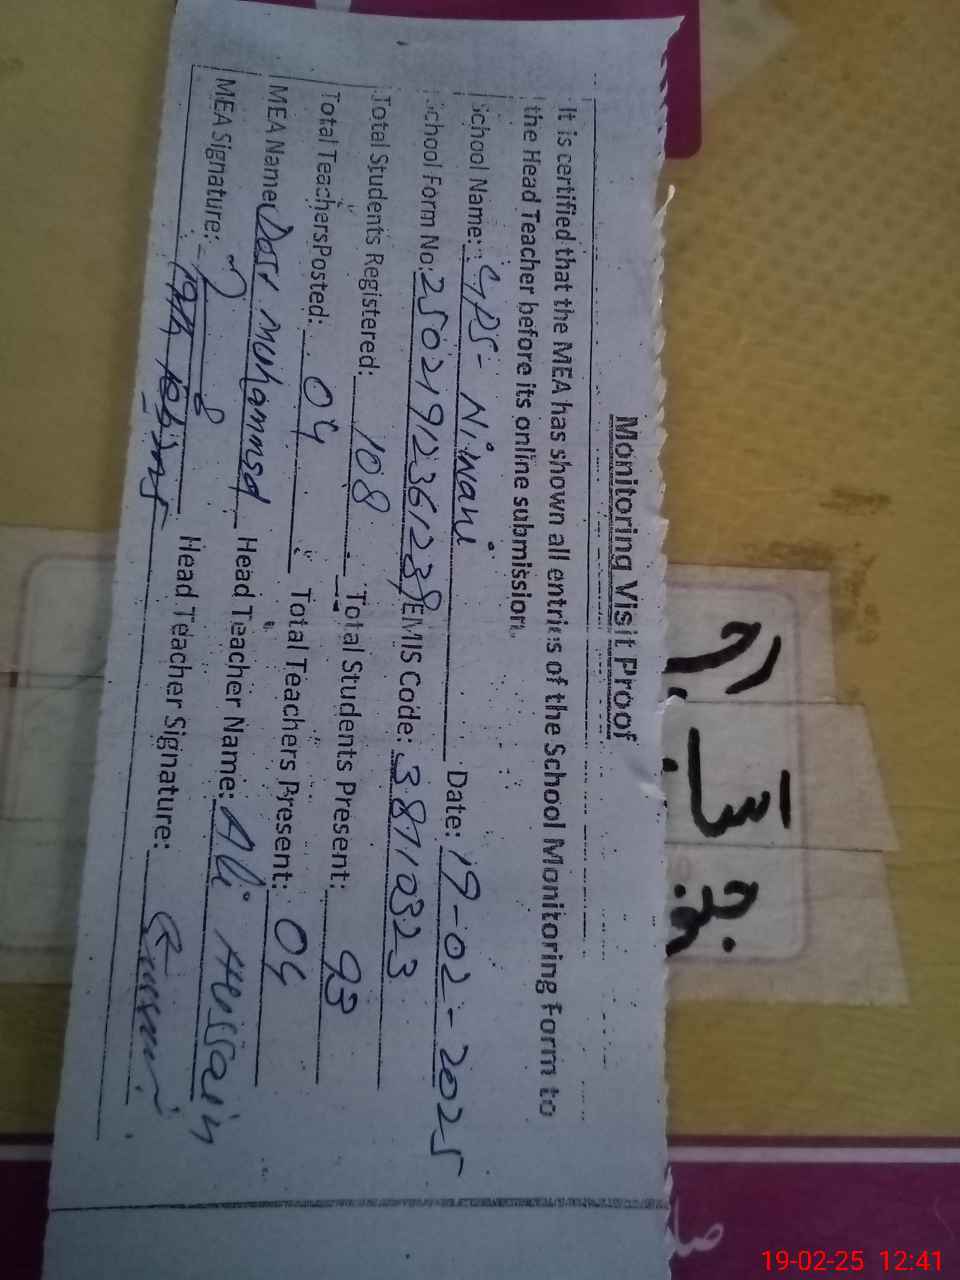 Monitoring Visit Proof
It is certified that the MEA has shown all entries of the School Monitoring Form to
the Head Teacher before its online submission.
School Name: GPS- Nimani Date: 19-02-2025
School Form No: 25021912361238 EMIS Code: 38710323
Total Students Registered: 108 Total Students Present: 93
Total Teachers Posted: 04 Total Teachers Present: 04
MEA Name: Dost Muhammad Head Teacher Name: Ali Hussain
MEA Signature: Head Teacher Signature:
19-02-25 12:41